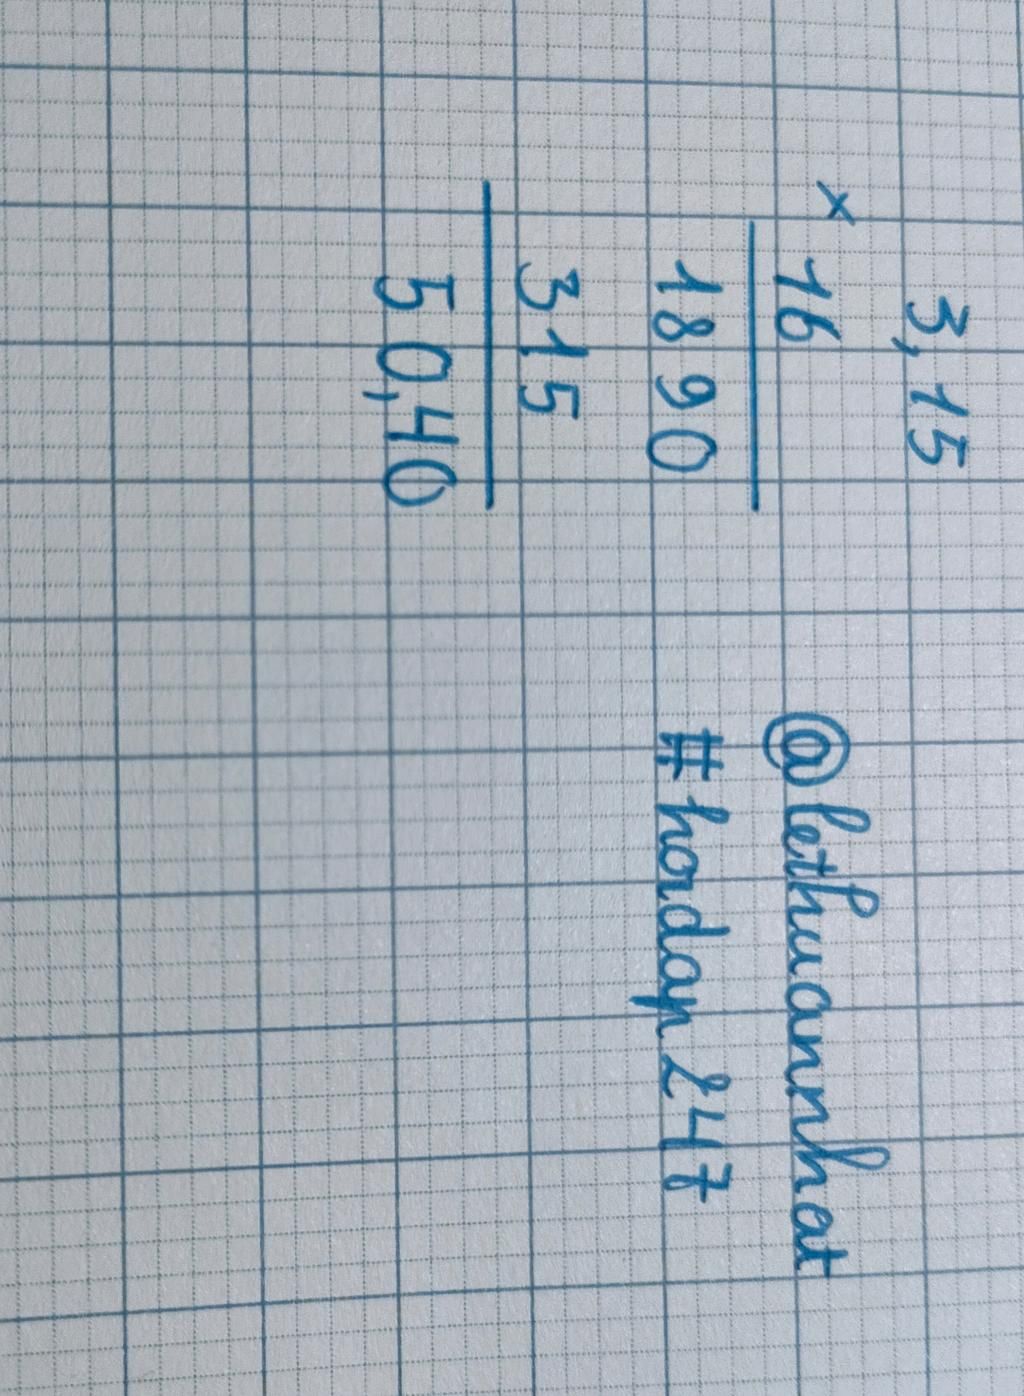 3,15
×
16
1890
315
50,40
@lethuannhat
#hoidap247